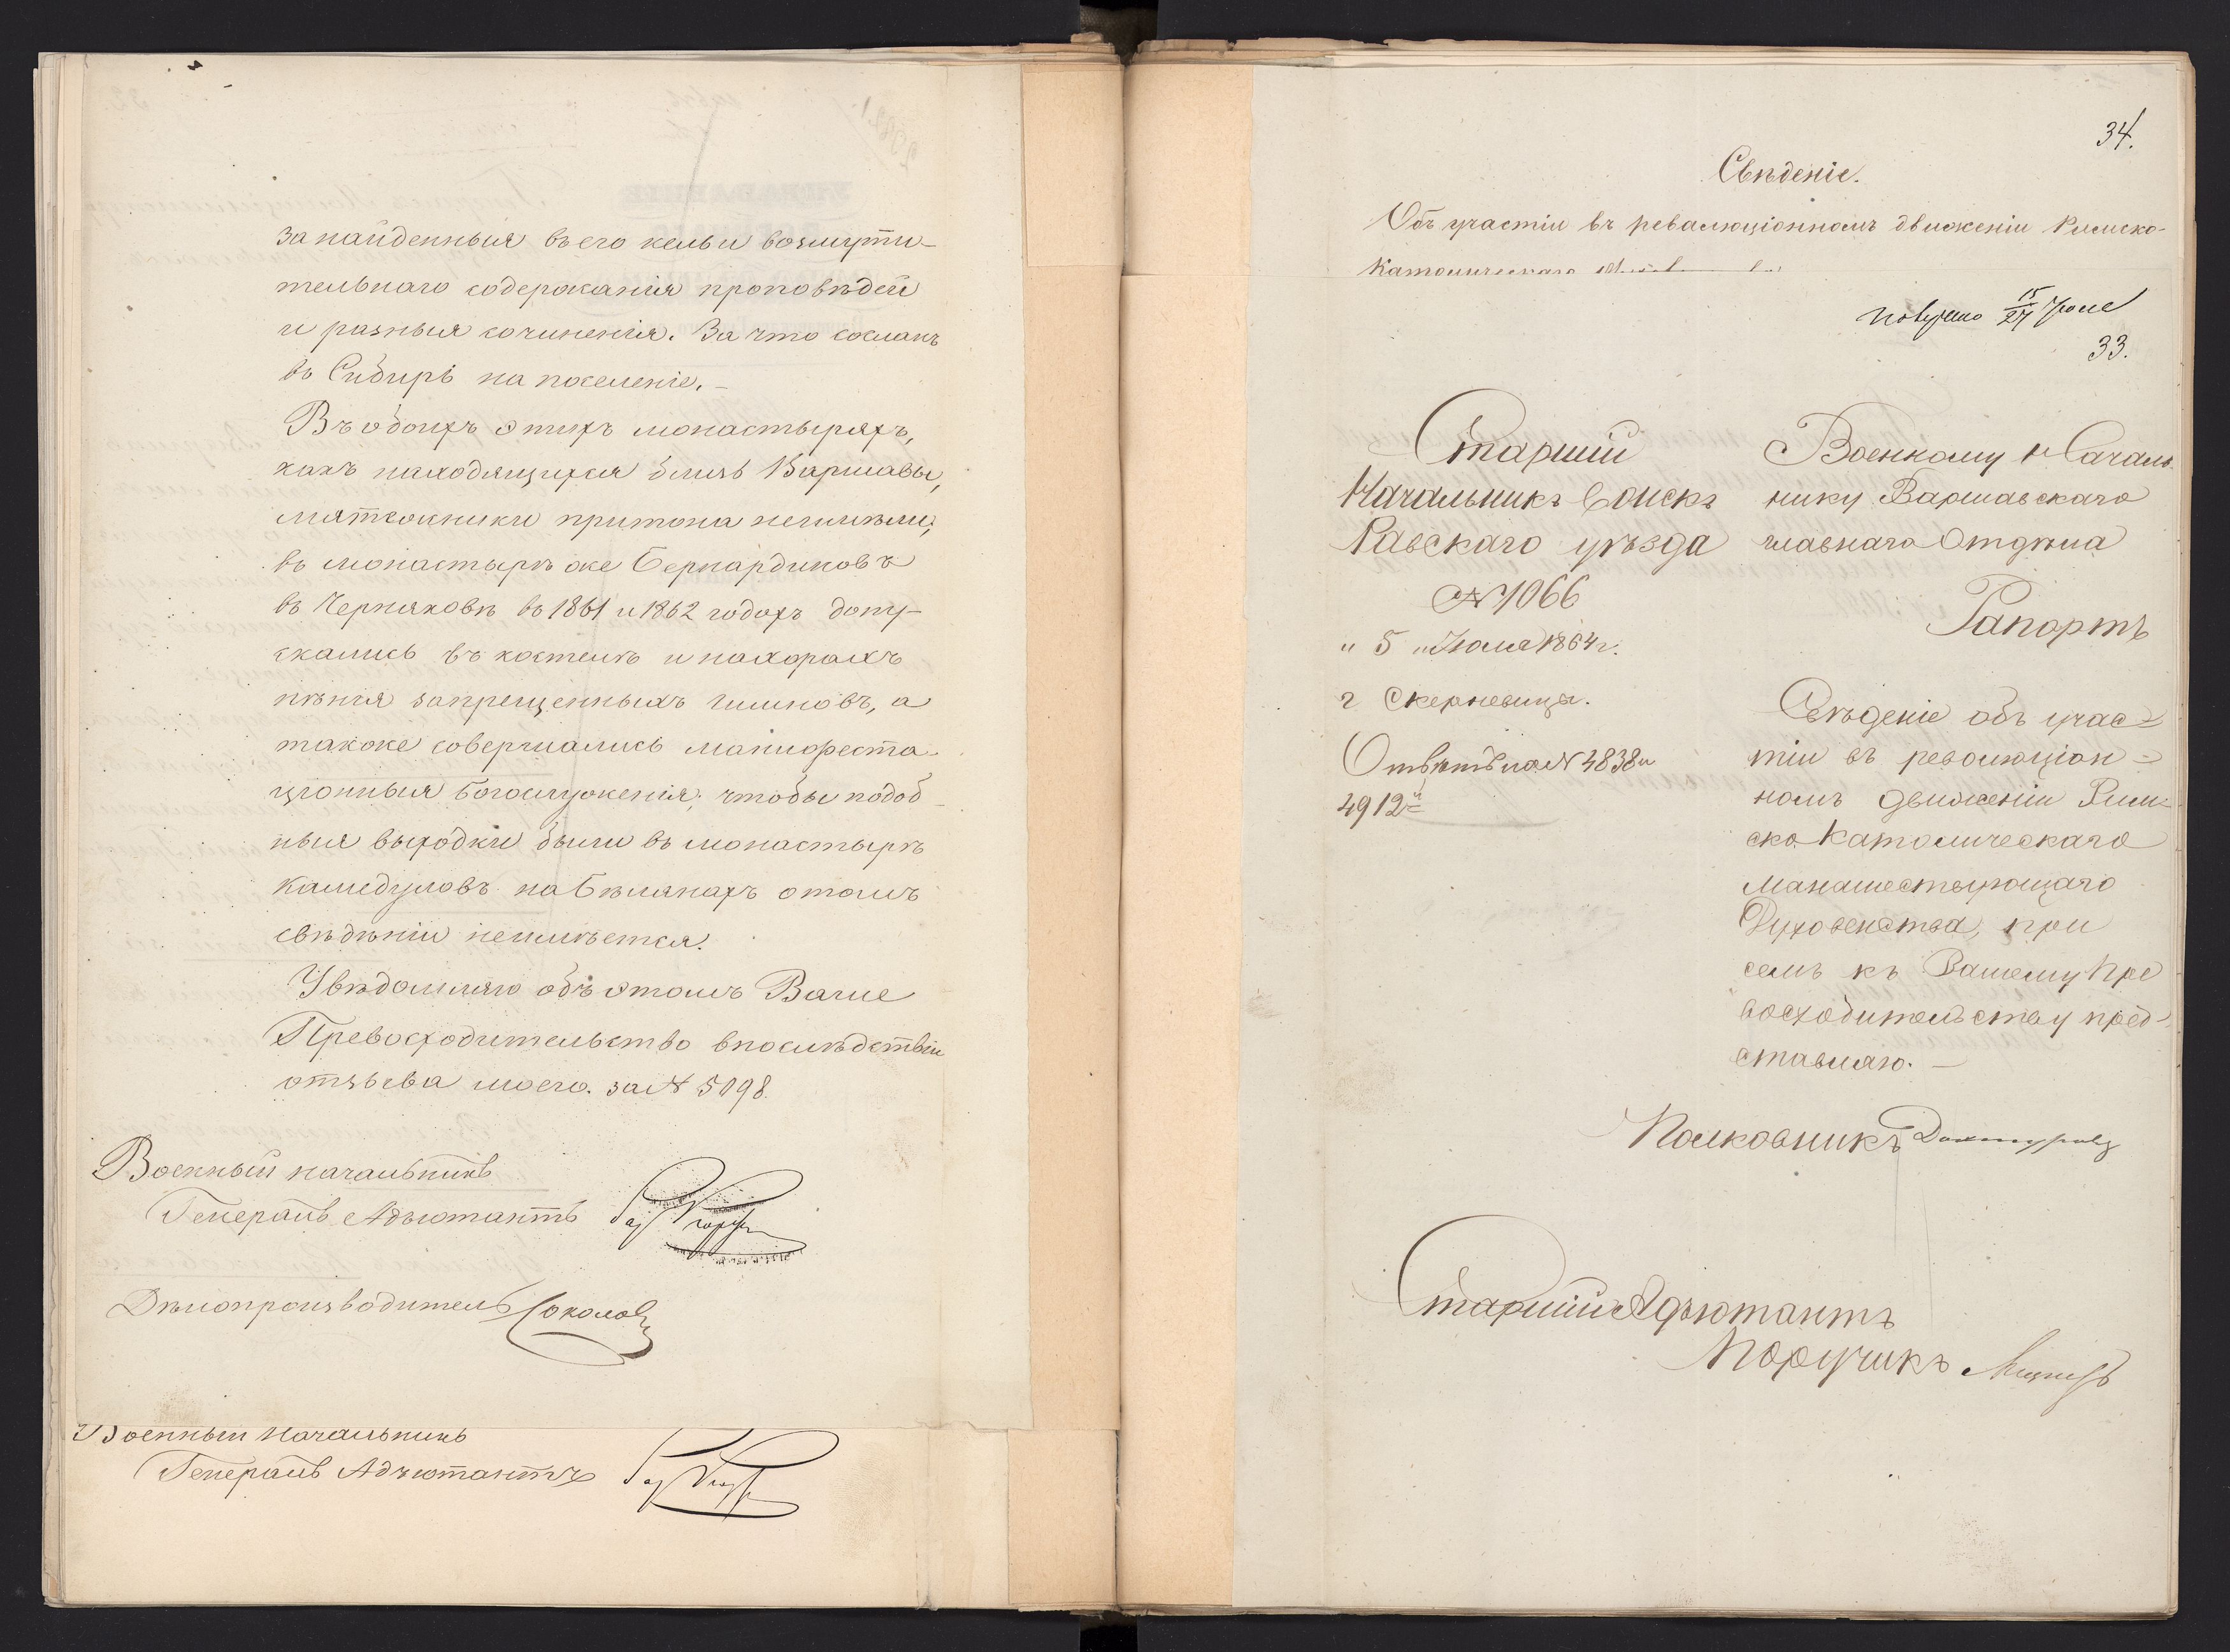 за найденныя въ его кельи возмути-
тельнаго содержанія проповѣдей
и разныя сочиненія. За что сосланъ
въ Сибирь на поселеніе.-
Въ обоихъ этихъ монастыряхъ,
какъ находящихся близь Варшавы,
мятежники притона неимѣли;
въ монастырѣ же Бернардиновъ
въ Черняковѣ въ 1861 и 1862 годахъ допу-
скались въ костелѣ и на хорахъ
пѣнія запрещенныхъ гимновъ, а
также совершались манифеста-
ціонныя богослуженія; чтобы подоб-
ныя выходки были въ монастырѣ
камедуловъ на Бѣлянахъ о томъ
свѣдѣніи неимѣется.
Увѣдомляю объ этомъ Ваше
Превосходительство впослѣдствіи
отзыва моего за № 5098.
Военный начальникъ
Генералъ Адъютантъ
Дѣлопроизводитель Соколовъ
Военный Начальникъ
Генералъ Адъютантъ
34.
Свѣденіе.
Объ участіи въ революціонномъ движеніи Римско-
Католическаго
получено 15/27 Іюля
33.
Старшій
Начальникъ Войскъ
Равскаго уѣзда
№ 1066
" 5 " Іюля 1864 г.
г Скерневицы.
Отвѣтъ на № 4838 и
4912й
Военному Началь-
нику Варшавскаго
главнаго Отдѣла
Рапортъ
Свѣденіе объ учас-
тіи въ революціон-
номъ движеніи Рим-
ско Католическаго
Манашествующаго
Духовенства, при
семъ къ Вашему Пре
восходительству пред-
ставляю. -
Полковникъ Дохтуровъ
Старшій Адъютантъ
Поручикъ